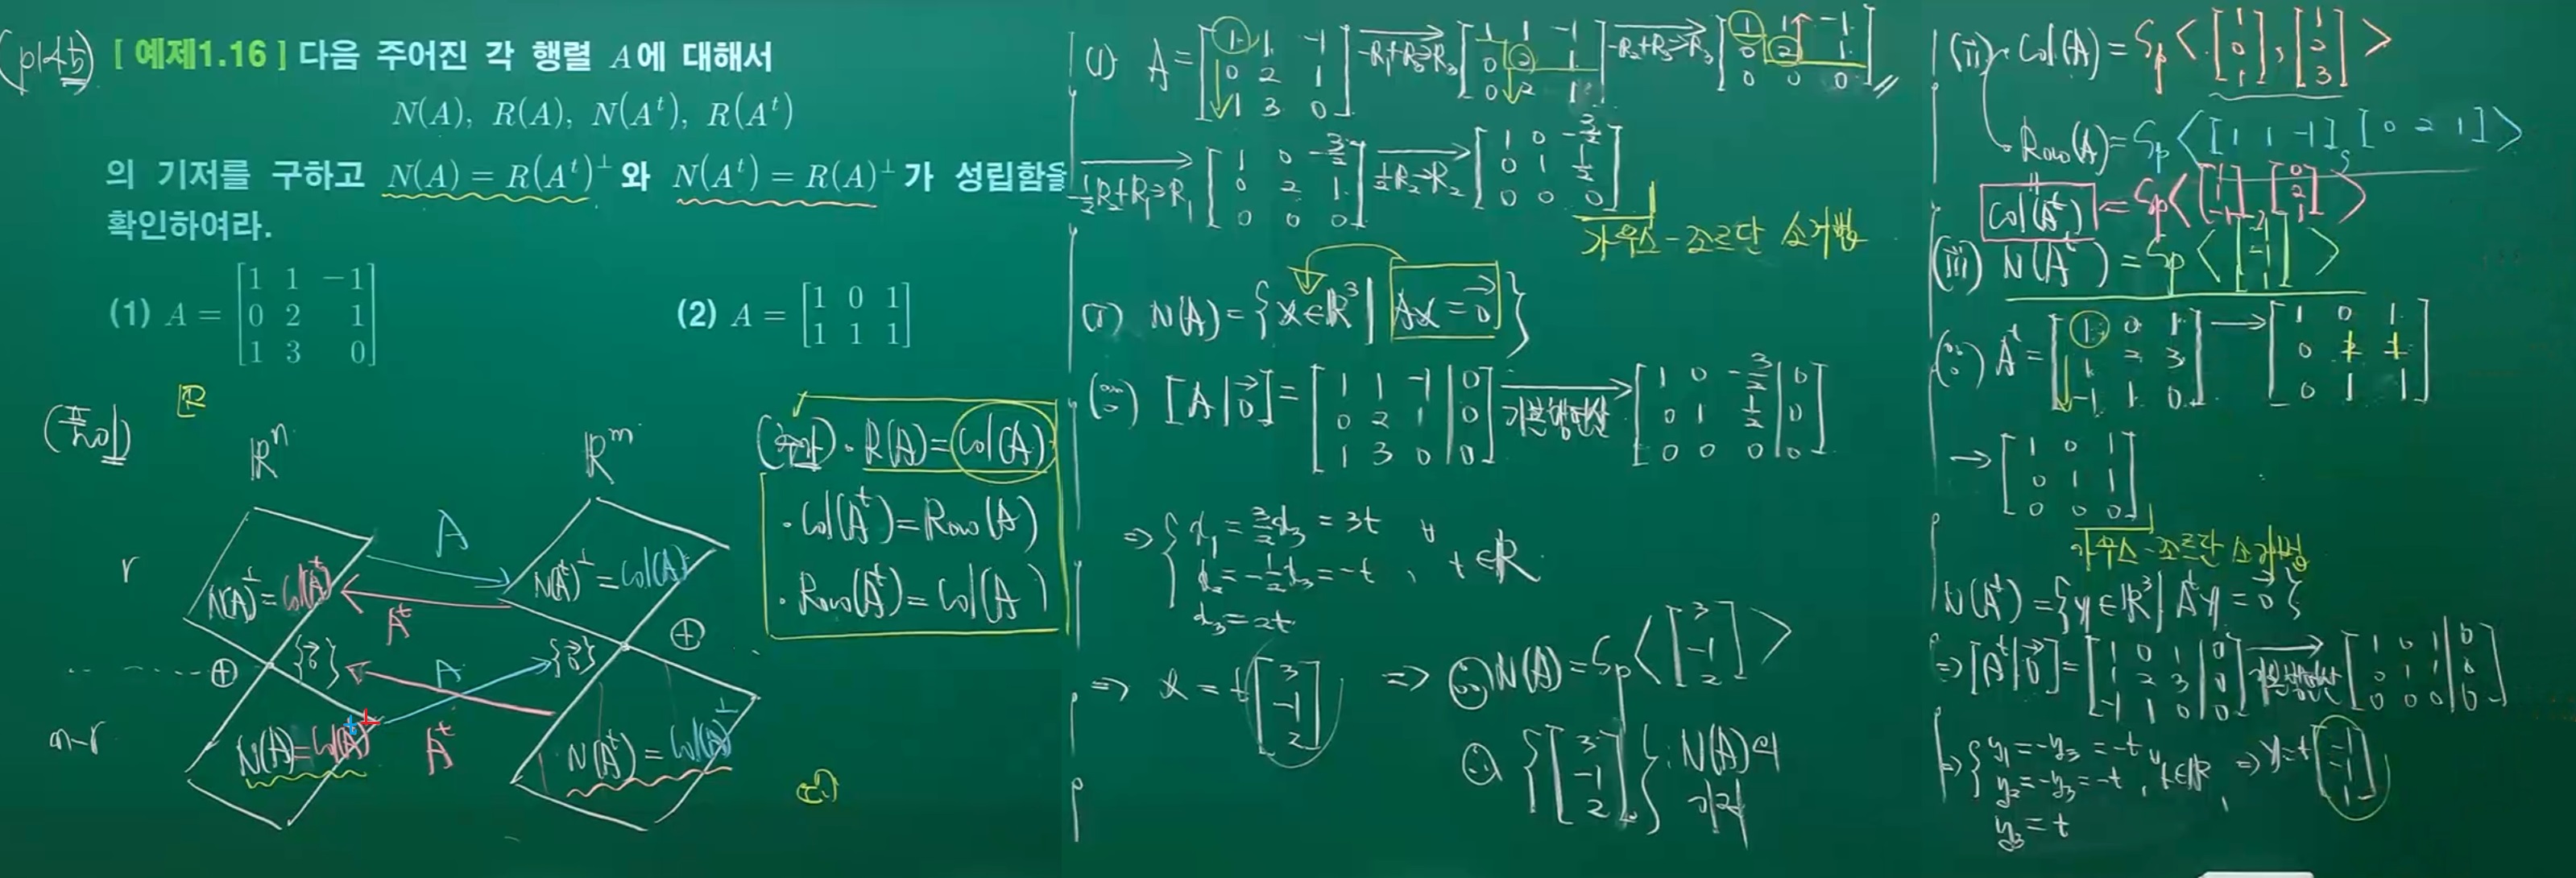 (p145) [ 예제1.16 ] 다음 주어진 각 행렬 A에 대해서
N(A), R(A), N(Aᵗ), R(Aᵗ)
의 기저를 구하고 N(A) = R(Aᵗ)^⊥ 와 N(Aᵗ) = R(A)^⊥ 가 성립함을
확인하여라.
(1) A = [1 1 −1; 0 2 1; 1 3 0] (2) A = [1 0 1; 1 1 1]
(풀이)
ℝⁿ ℝᵐ
r
N(A)^⊥ = Col(Aᵗ) A Aᵗ N(Aᵗ)^⊥ = Col(A)
⊕ {0⃗} A {0⃗} ⊕
n−r
N(A) = Col(Aᵗ)^⊥ Aᵗ N(Aᵗ) = Col(A)^⊥
· R(A) = Col(A)
· Col(Aᵗ) = Row(A)
· Row(Aᵗ) = Col(A)
(1) A = [1 1 −1; 0 2 1; 1 3 0] −R₁+R₃→R₃ [1 1 −1; 0 2 1; 0 2 1] −R₂+R₃→R₃ [1 1 −1; 0 2 1; 0 0 0]
−½R₂+R₁→R₁ [1 0 −3/2; 0 2 1; 0 0 0] ½R₂→R₂ [1 0 −3/2; 0 1 1/2; 0 0 0]
가우스-조르단 소거법
(i) N(A) = {x∈ℝ³ | Ax = 0⃗}
(∵) [A | 0⃗] = [1 1 −1 | 0; 0 2 1 | 0; 1 3 0 | 0] 기본행연산 [1 0 −3/2 | 0; 0 1 1/2 | 0; 0 0 0 | 0]
⇒ { x₁ = 3/2 x₃ = 3t
x₂ = −1/2 x₃ = −t , ∀t∈ℝ
x₃ = 2t
⇒ x = t[3; −1; 2] ⇒ ∴ N(A) = Sp<[3; −1; 2]>
∴ {[3; −1; 2]} : N(A)의 기저
(ii) · Col(A) = Sp<[1; 0; 1], [1; 2; 3]>
· Row(A) = Sp<[1 1 −1], [0 2 1]>
Col(Aᵗ) = Sp<[1; 1; −1], [0; 2; 1]>
(iii) N(Aᵗ) = Sp<[−1; −1; 1]>
(∵) Aᵗ = [1 0 1; 1 2 3; −1 1 0] → [1 0 1; 0 1 1; 0 1 1]
→ [1 0 1; 0 1 1; 0 0 0]
가우스-조르단 소거법
N(Aᵗ) = {y∈ℝ³ | Aᵗy = 0⃗}
⇒ [Aᵗ | 0⃗] = [1 0 1 | 0; 1 2 3 | 0; −1 1 0 | 0] 기본행연산 [1 0 1 | 0; 0 1 1 | 0; 0 0 0 | 0]
⇒ { y₁ = −y₃ = −t
y₂ = −y₃ = −t , ∀t∈ℝ ⇒ y = t[−1; −1; 1]
y₃ = t